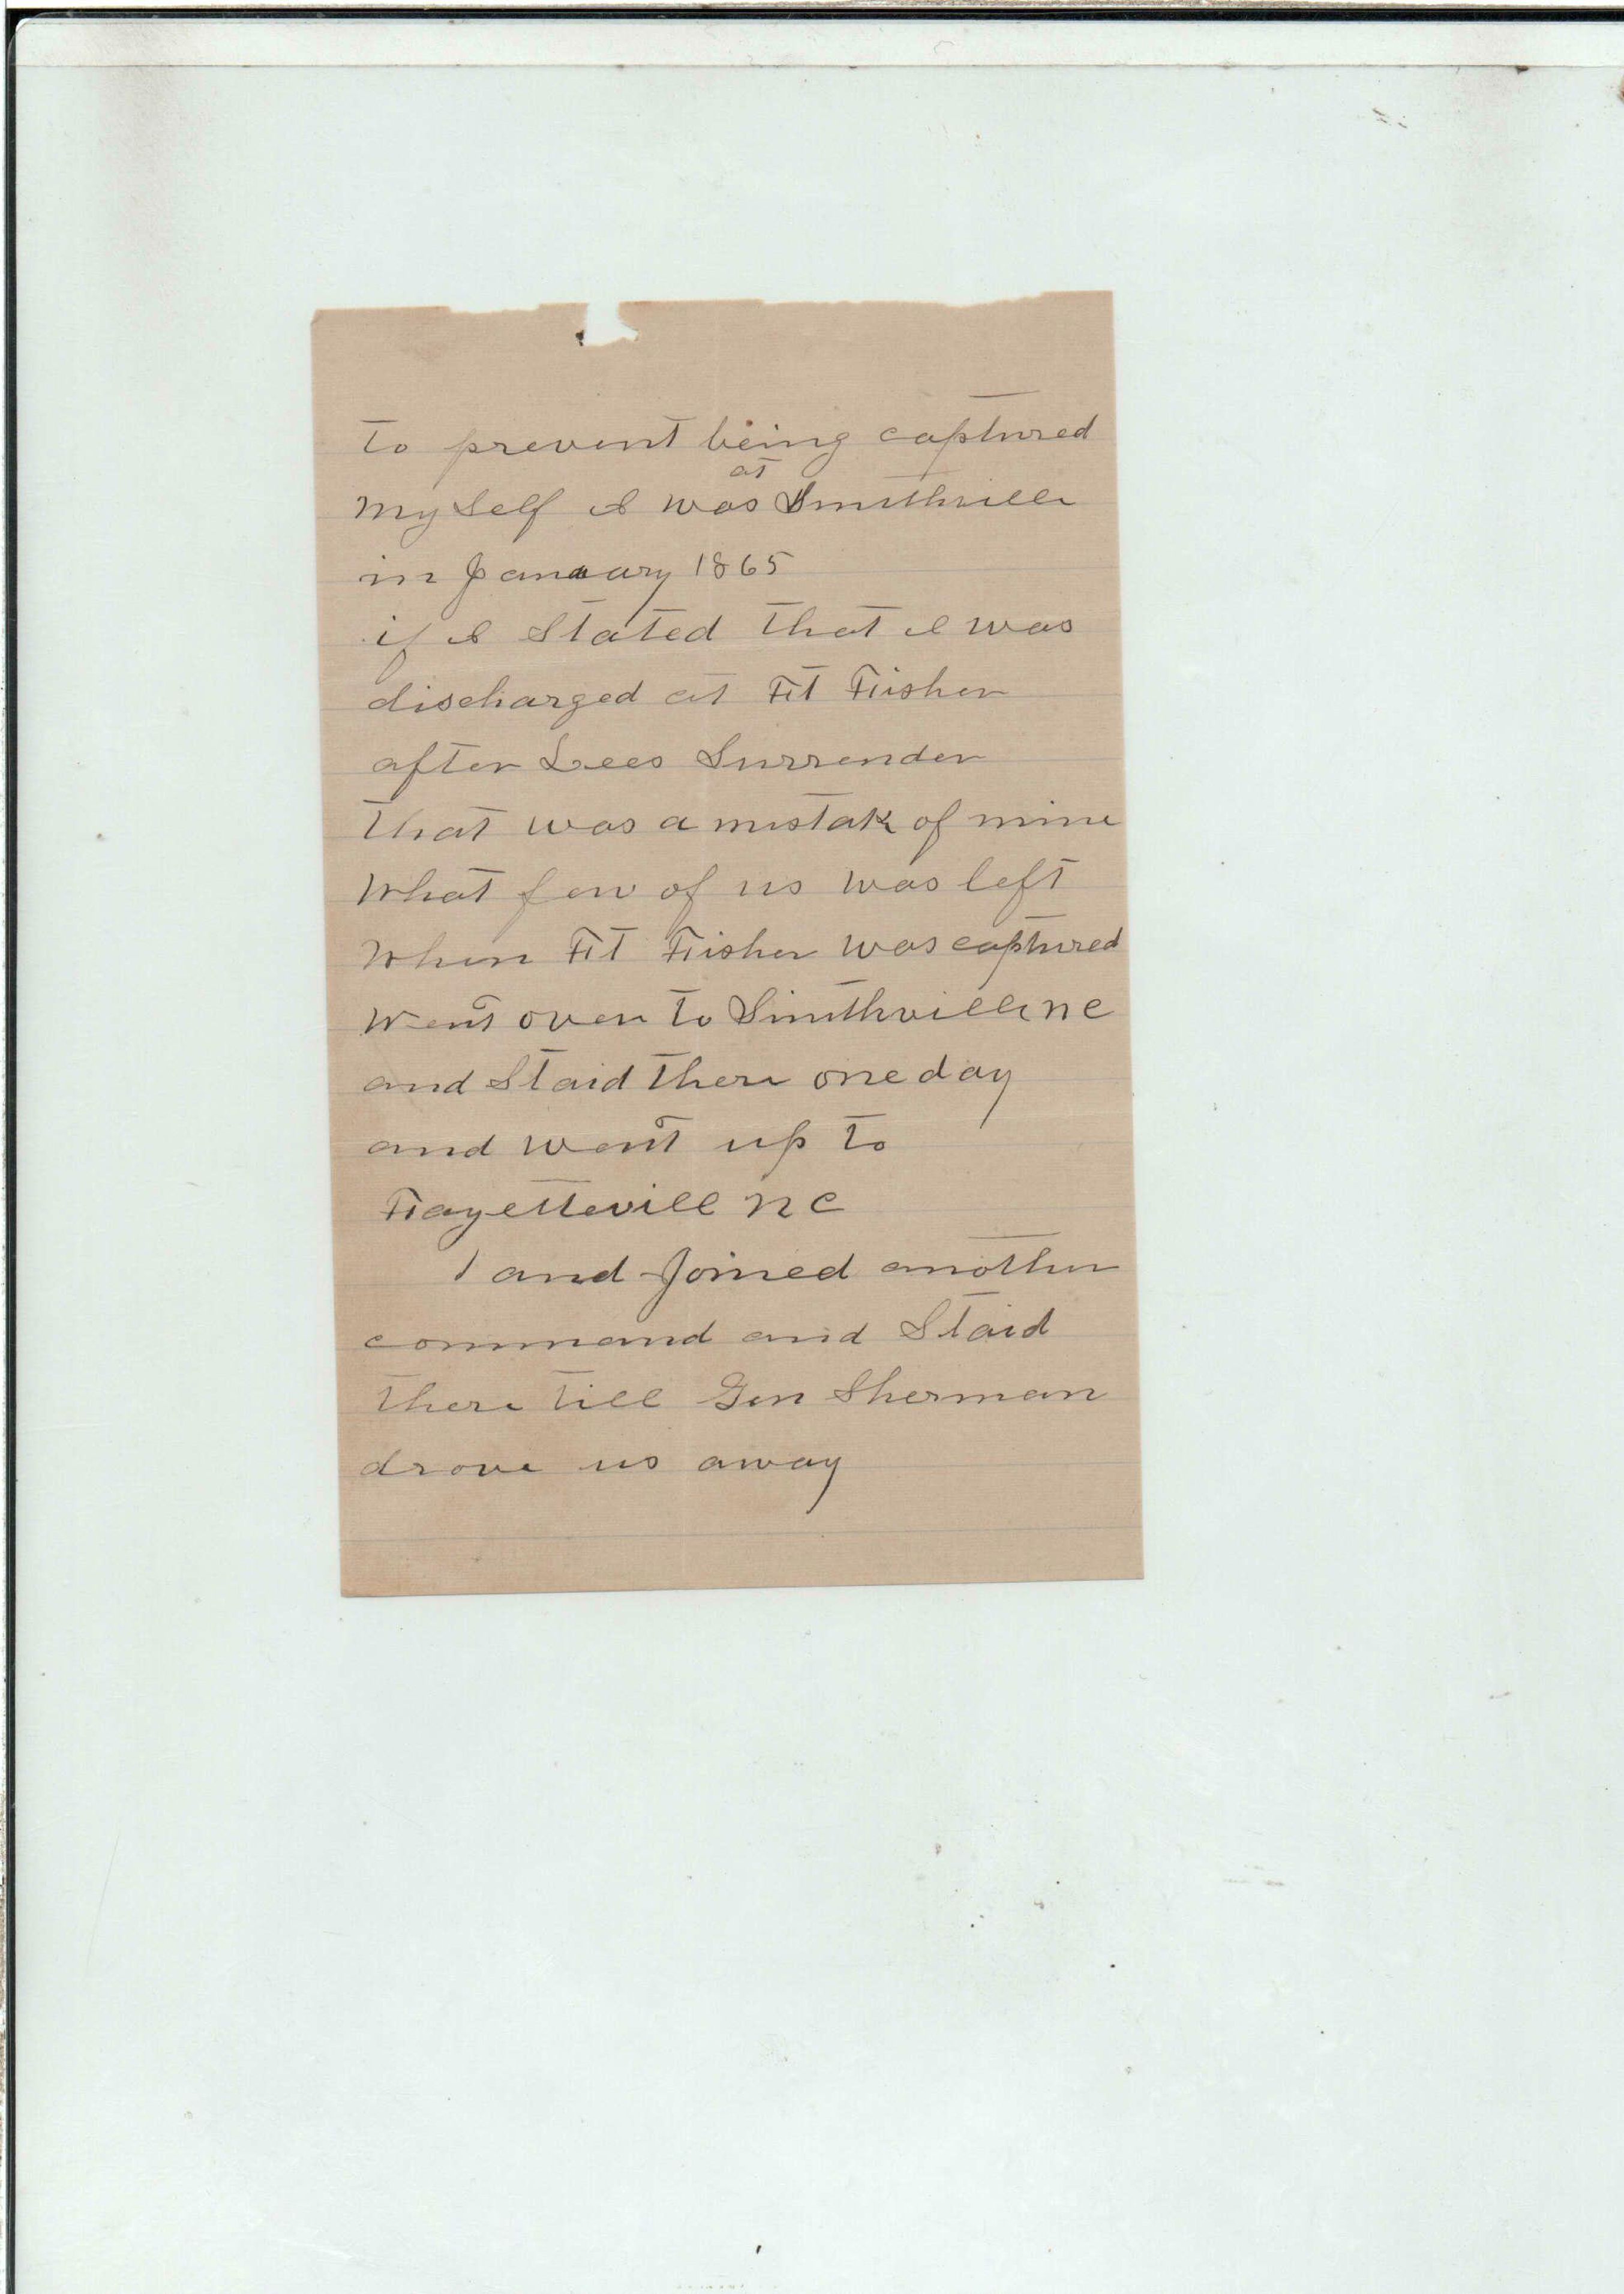 to prevent being captured
my Self I was at Smithvill
in January 1865
if I Stated that I was
discharged at Ft Fisher
after Lees Surrender
that was a mistak of mine
What few of us was left
When Ft Fisher was captured
went over to Smithville N C
and Staid there one day
and went up to
Fayettevill N C
I and Joined another
command and Staid
there till Gen Sherman
drove us away